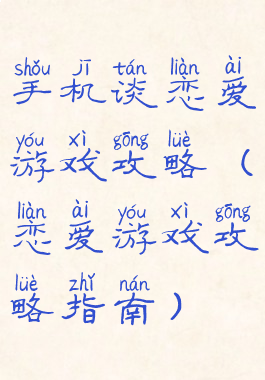 shǒu jī tán liàn ài
手机谈恋爱
yóu xì gōng lüè
游戏攻略（
liàn ài yóu xì gōng
恋爱游戏攻
lüè zhǐ nán
略指南）